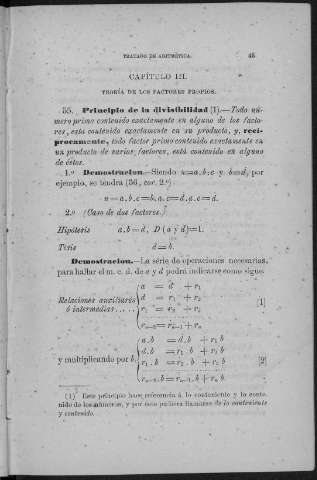 TRATADO DE ARITMÉTICA. 45
CAPÍTULO III.
TEORÍA DE LOS FACTORES PROPIOS.
55. Principio de la divisibilidad (1).—Todo nú-
mero primo contenido exactamente en alguno de los facto-
res, esta contenido exactamente en su producto, y, reci-
procamente, todo factor primo contenido exactamente en
un producto de varios factores, está contenido en alguno
de éstos.
1.º Demostracion.—Siendo u=a.b.c y b=d, por
ejemplo, se tendra (56, cor. 2.º)
u=a.b.c=b.a.c=d.a.c=d.
2.º (Caso de dos factores.)
Hipótesis a.b=d, D(a y d)=1.
Tésis d=b.
Demostracion.—La série de operaciones necesarias,
para hallar el m. c. d. de a y d podrá indicarse como sigue
a = d + r₁
Relaciones auxiliares d = r₁ + r₂ [1]
ó intermedias..... r₁ = r₂ + r₃
rₙ₋₂=rₙ₋₁+rₙ
a.b =d.b +r₁b
d.b =r₁.b +r₂.b
y multiplicando por b. r₁.b =r₂.b +r₃.b [2]
rₙ₋₂.b=rₙ₋₁.b+rₙ.b
(1) Este principio hace referencia á lo conteniente y lo conte-
nido de los números, y por esto pudiera llamarse de lo conteniente
y contenido.